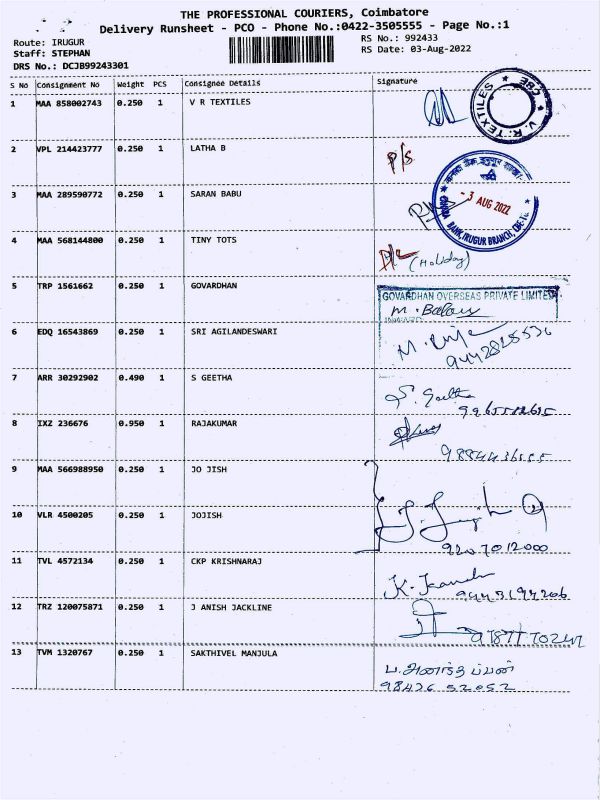 THE PROFESSIONAL COURIERS, Coimbatore
Delivery Runsheet - PCO - Phone No.:0422-3505555 - Page No.:1
Route: IRUGUR
RS No.: 992433
Staff: STEPHAN
RS Date: 03-Aug-2022
DRS No.: DCJB99243301
S No Consignment No Weight PCS Consignee Details Signature
1 MAA 858002743 0.250 1 V R TEXTILES
V.R. TEXTILES * CBE *
2 VPL 214423777 0.250 1 LATHA B P/S
3 MAA 289590772 0.250 1 SARAN BABU
- 3 AUG 2022
BANK, IRUGUR BRANCH, CBE
4 MAA 568144800 0.250 1 TINY TOTS D/L (Holiday)
5 TRP 1561662 0.250 1 GOVARDHAN
GOVARDHAN OVERSEAS PRIVATE LIMITED
6 EDQ 16543869 0.250 1 SRI AGILANDESWARI
9442828536
7 ARR 30292902 0.490 1 S GEETHA
S. Geetha
8 IXZ 236676 0.950 1 RAJAKUMAR
9 MAA 566988950 0.250 1 JO JISH
10 VLR 4500205 0.250 1 JOJISH
9207012000
11 TVL 4572134 0.250 1 CKP KRISHNARAJ
9443194206
12 TRZ 120075871 0.250 1 J ANISH JACKLINE
13 TVM 1320767 0.250 1 SAKTHIVEL MANJULA
98426 52052